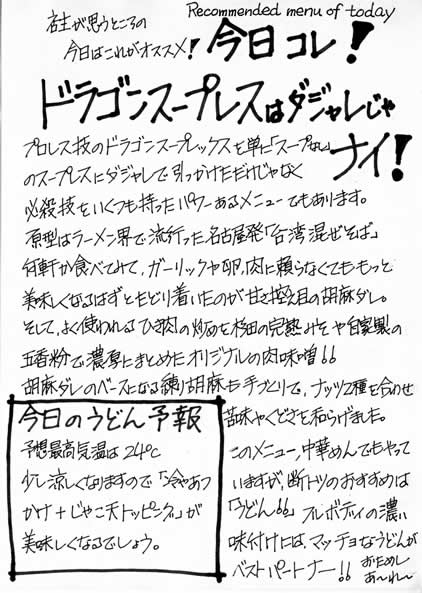 Recommended menu of today
店主が思うところの
今日はこれがオススメ!
今日コレ!
ドラゴンスープレスはダジャレじゃ
ナイ!
プロレス技のドラゴンスープレックスを単に「スープなし」
のスープレスにダジャレで引っかけただけじゃなく
必殺技をいくつも持ったパワーあるメニューでもあります。
原型はラーメン界で流行った名古屋発「台湾混ぜそば」
何軒か食べてみて、ガーリックや卵、肉に頼らなくてももっと
美味しくなるはずとたどり着いたのが甘さ控え目の胡麻ダレ。
そして、よく使われるひき肉の炒めを の完熟みそや自家製の
五香粉で濃厚にまとめたオリジナルの肉味噌!!
胡麻ダレのベースになる練り胡麻も手づくりで、ナッツ2種を合わせ
苦味やくどさを和らげました。
このメニュー、中華めんでもやって
いますが、断トツのおすすめは
「うどん!!」フルボディの濃い
味付けには、マッチョなうどんが
ベストパートナー!!
おためし
あ〜れ〜
今日のうどん予報
予想最高気温は24℃
少し涼しくなりますので「冷やあつ
かけ+じゃこ天トッピング」が
美味しくなるでしょう。